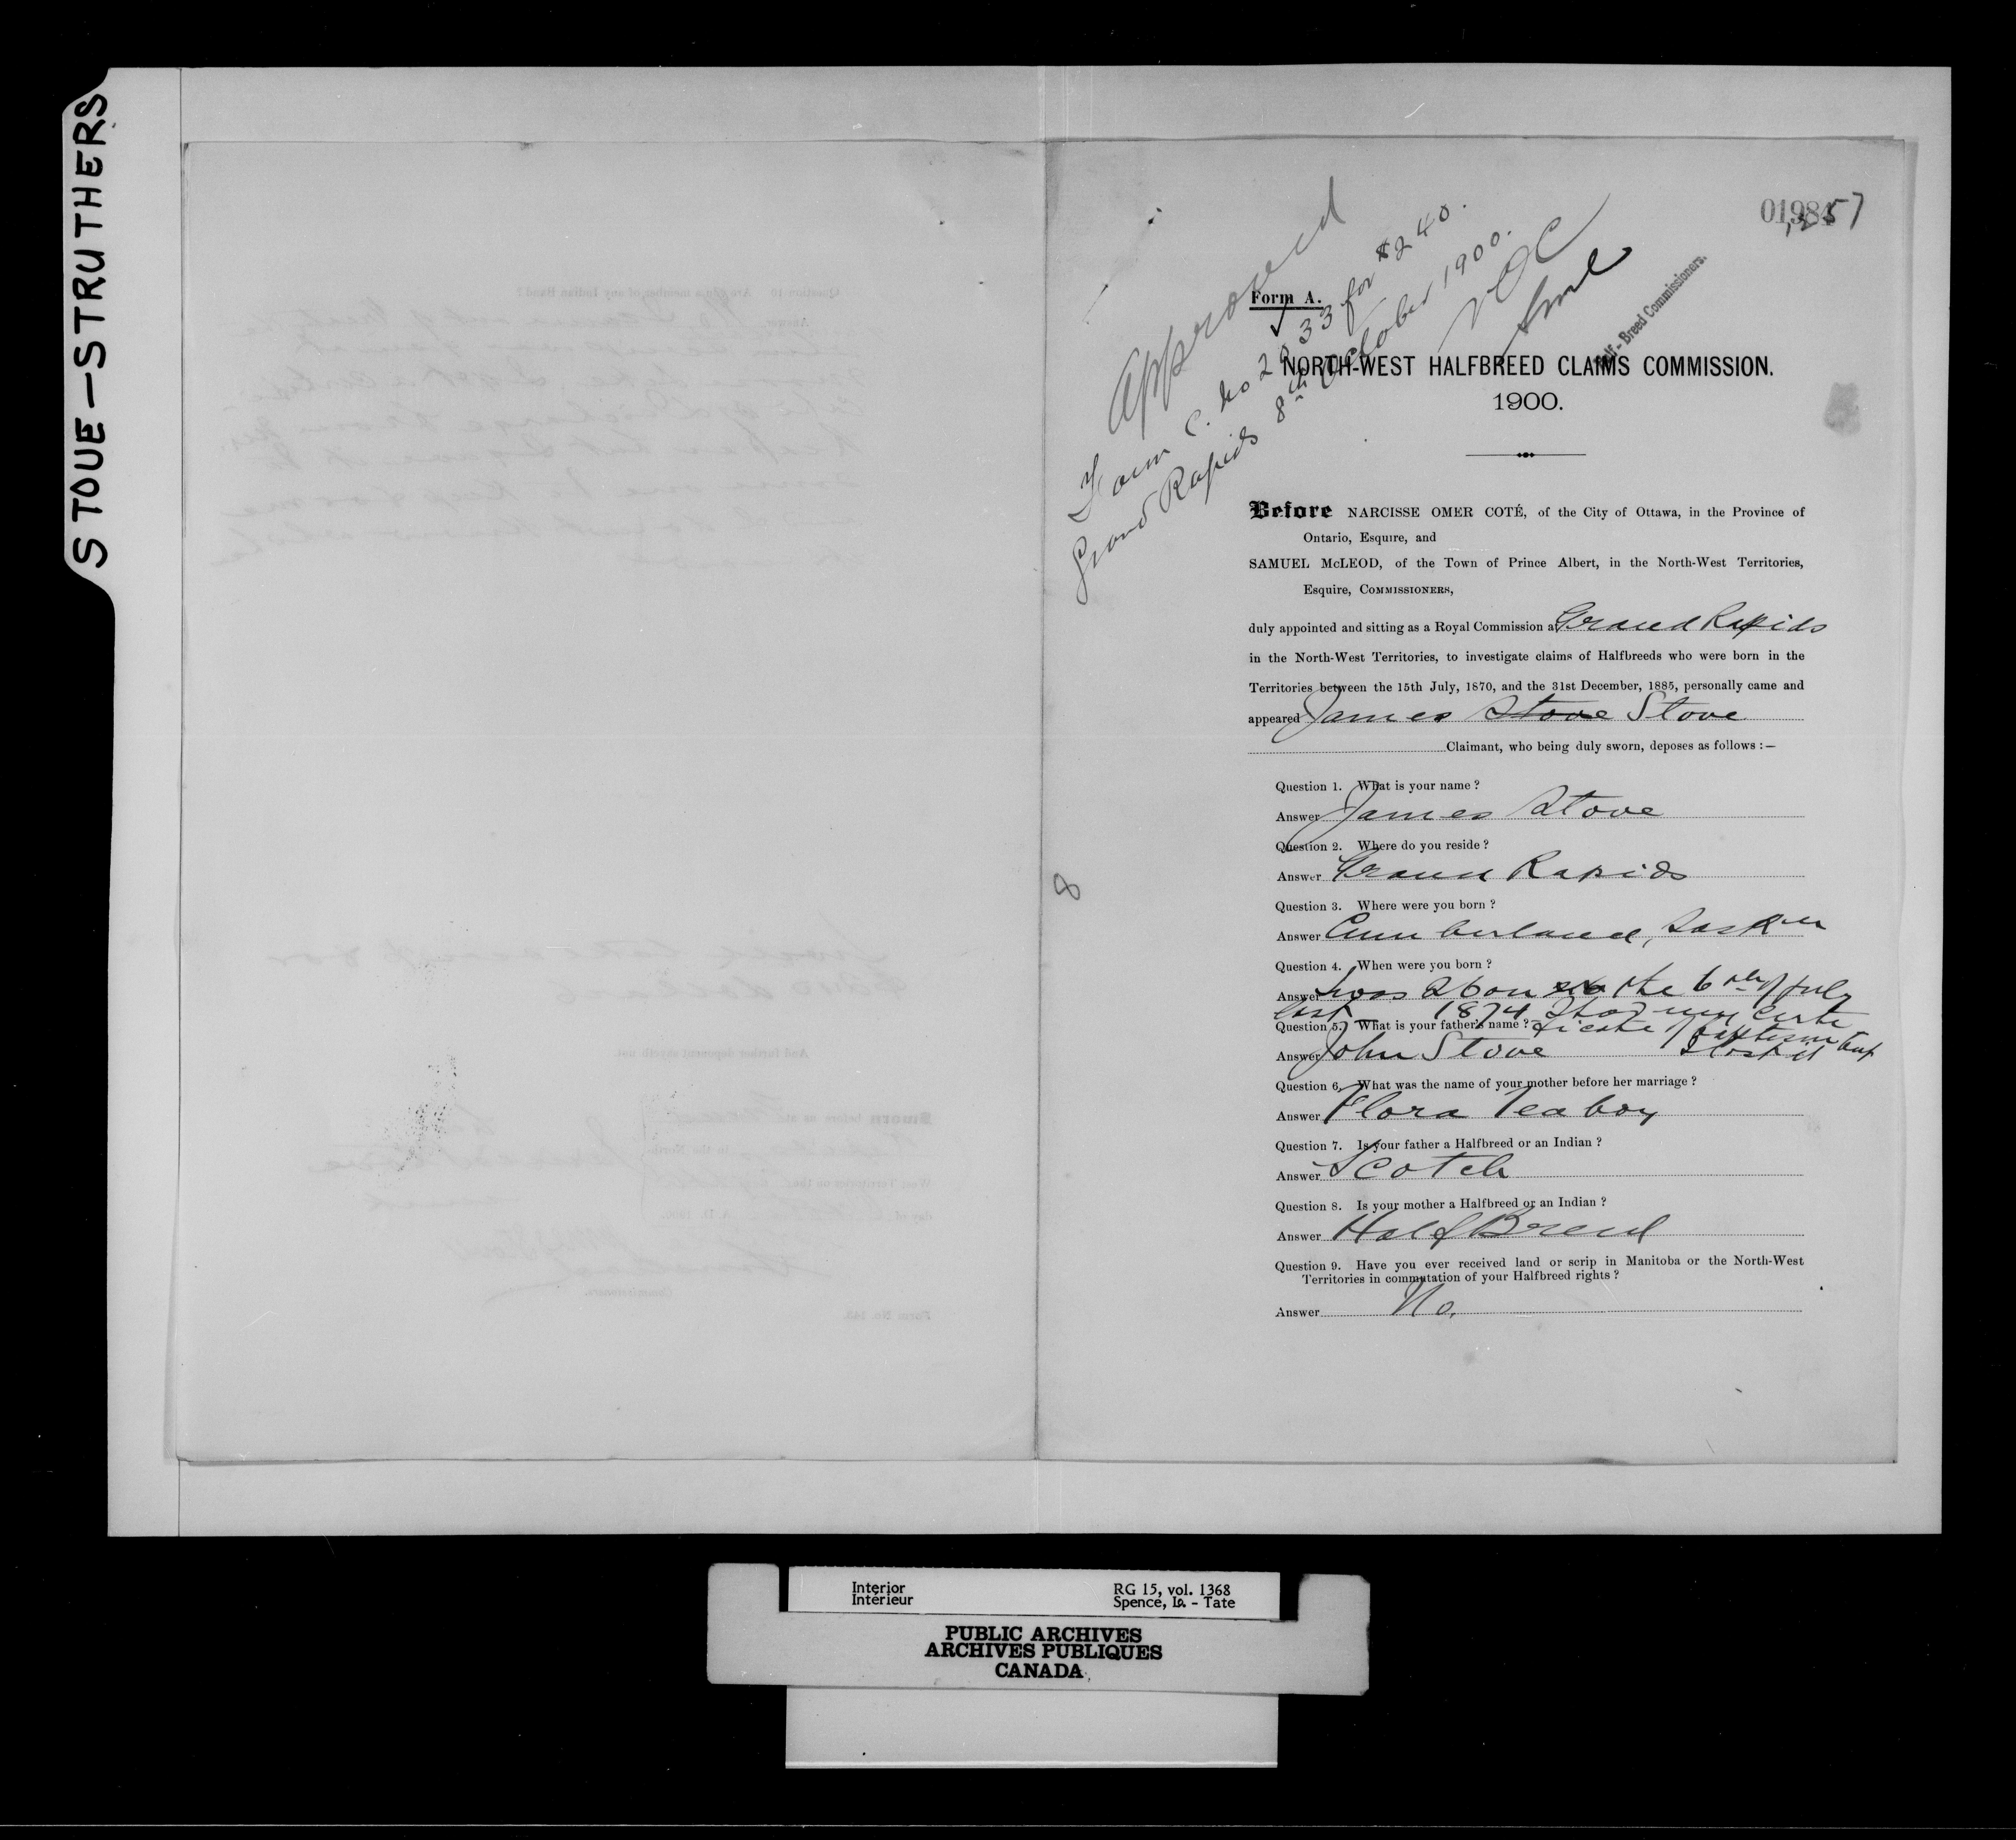 STOUE-STRUTHERS
01984
,257
Approved
Form C. No 2933 for $240.
Grand Rapids 8th October 1900.
NOC
Half-Breed Commissioners.
Form A.
NORTH-WEST HALFBREED CLAIMS COMMISSION.
1900.
Before NARCISSE OMER COTÉ, of the City of Ottawa, in the Province of
Ontario, Esquire, and
SAMUEL McLEOD, of the Town of Prince Albert, in the North-West Territories,
Esquire, COMMISSIONERS,
duly appointed and sitting as a Royal Commission at Grand Rapids
in the North-West Territories, to investigate claims of Halfbreeds who were born in the
Territories between the 15th July, 1870, and the 31st December, 1885, personally came and
appeared James Stove Stove
Claimant, who being duly sworn, deposes as follows :—
Question 1. What is your name ?
Answer James Stove
Question 2. Where do you reside ?
Answer Grand Rapids
8
Question 3. Where were you born ?
Answer Cumberland, Saskn
Question 4. When were you born ?
Answer I was 26 on the 6th July
last 1874 I had my certi
Question 5. What is your father's name ? ficate of baptism but
Answer John Stove I lost it
Question 6. What was the name of your mother before her marriage ?
Answer Flora Teaboy
Question 7. Is your father a Halfbreed or an Indian ?
Answer Scotch
Question 8. Is your mother a Halfbreed or an Indian ?
Answer Half Breed
Question 9. Have you ever received land or scrip in Manitoba or the North-West
Territories in commutation of your Halfbreed rights ?
Answer No.
Interior
Intérieur
RG 15, vol. 1368
Spence, Ia. - Tate
PUBLIC ARCHIVES
ARCHIVES PUBLIQUES
CANADA